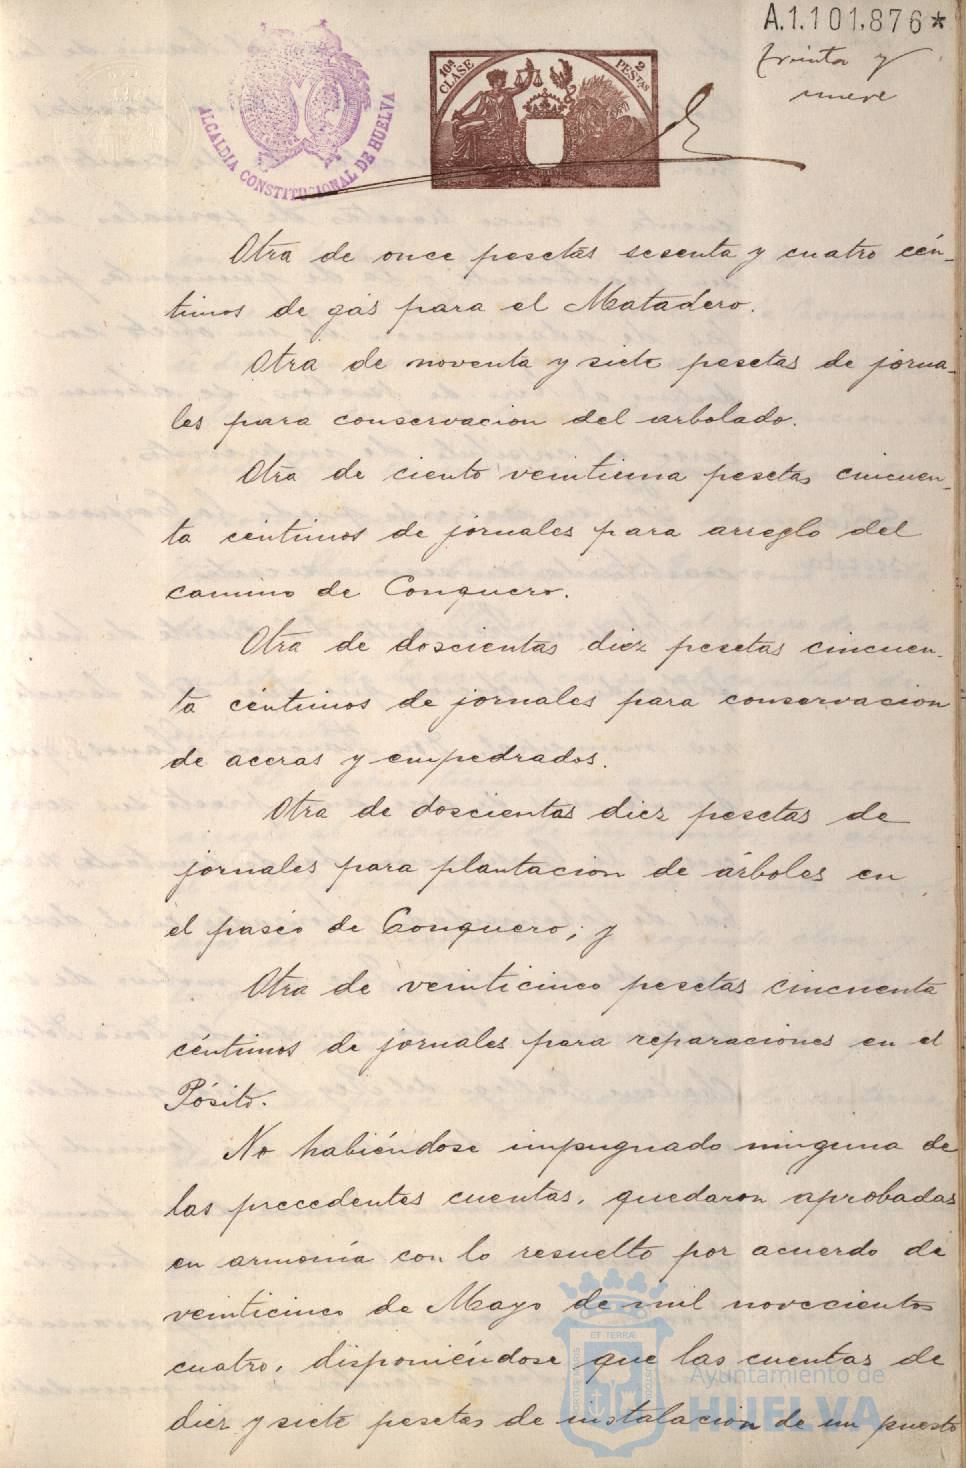 A.1.101,876*
treinta y
nueve
ALCALDIA CONSTITUCIONAL DE HUELVA
10ª CLASE
2 PESTAS
Otra de once pesetas sesenta y cuatro cén-
timos de gás para el Matadero.
Otra de noventa y siete pesetas de jorna-
les para conservacion del arbolado.
Otra de ciento veintiuna pesetas cincuen-
ta céntimos de jornales para arreglo del
camino de Conquero.
Otra de doscientas diez pesetas cincuen-
ta céntimos de jornales para conservacion
de aceras y empedrados.
Otra de doscientas diez pesetas de
jornales para plantacion de árboles en
el paseo de Conquero; y
Otra de veinticinco pesetas cincuenta
céntimos de jornales para reparaciones en el
Pósito.
No habiéndose impugnado ninguna de
las precedentes cuentas, quedaron aprobadas
en armonía con lo resuelto por acuerdo de
veinticinco de Mayo de mil novecientos
cuatro, disponiéndose que las cuentas de
diez y siete pesetas de instalacion de un puesto
ET TERRÆ
Ayuntamiento de
HUELVA